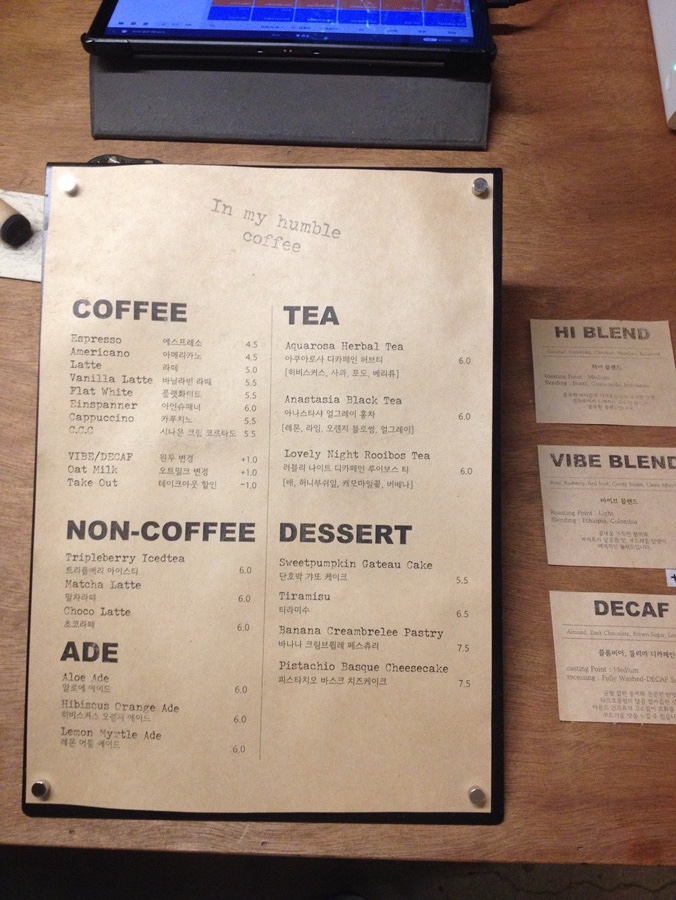 In my humble
coffee
COFFEE
Espresso 에스프레소 4.5
Americano 아메리카노 4.5
Latte 라떼 5.0
Vanilla Latte 바닐라빈 라떼 5.5
Flat White 플랫화이트 5.5
Einspanner 아인슈페너 6.0
Cappuccino 카푸치노 5.5
C.C.C 시나몬 크림 코르타도 5.5
VIBE/DECAF 원두 변경 +1.0
Oat Milk 오트밀크 변경 +1.0
Take Out 테이크아웃 할인 -1.0
NON-COFFEE
Tripleberry Icedtea
트리플베리 아이스티 6.0
Matcha Latte
말차라떼 6.0
Choco Latte
초코라떼 6.0
ADE
Aloe Ade
알로에 에이드 6.0
Hibiscus Orange Ade
히비스커스 오렌지 에이드 6.0
Lemon Myrtle Ade
레몬 머틀 에이드 6.0
TEA
Aquarosa Herbal Tea
아쿠아로사 디카페인 허브티 6.0
[히비스커스, 사과, 포도, 베리류]
Anastasia Black Tea
아나스타샤 얼그레이 홍차 6.0
[레몬, 라임, 오렌지 블로썸, 얼그레이]
Lovely Night Rooibos Tea
러블리 나이트 디카페인 루이보스 티 6.0
[배, 허니부쉬잎, 캐모마일꽃, 버베나]
DESSERT
Sweetpumpkin Gateau Cake
단호박 갸또 케이크 5.5
Tiramisu
티라미수 6.5
Banana Creambrelee Pastry
바나나 크림브륄레 페스츄리 7.5
Pistachio Basque Cheesecake
피스타치오 바스크 치즈케이크 7.5
HI BLEND
하이 블렌드
Roasting Point : Medium
VIBE BLEND
바이브 블렌드
Roasting Point : Light
Blending : Ethiopia, Colombia
DECAF
Almond, Dark Chocolate, Brown Sugar
콜롬비아, 톨리마 디카페인
casting Point : Medium
rocessing : Fully Washed-DECAF